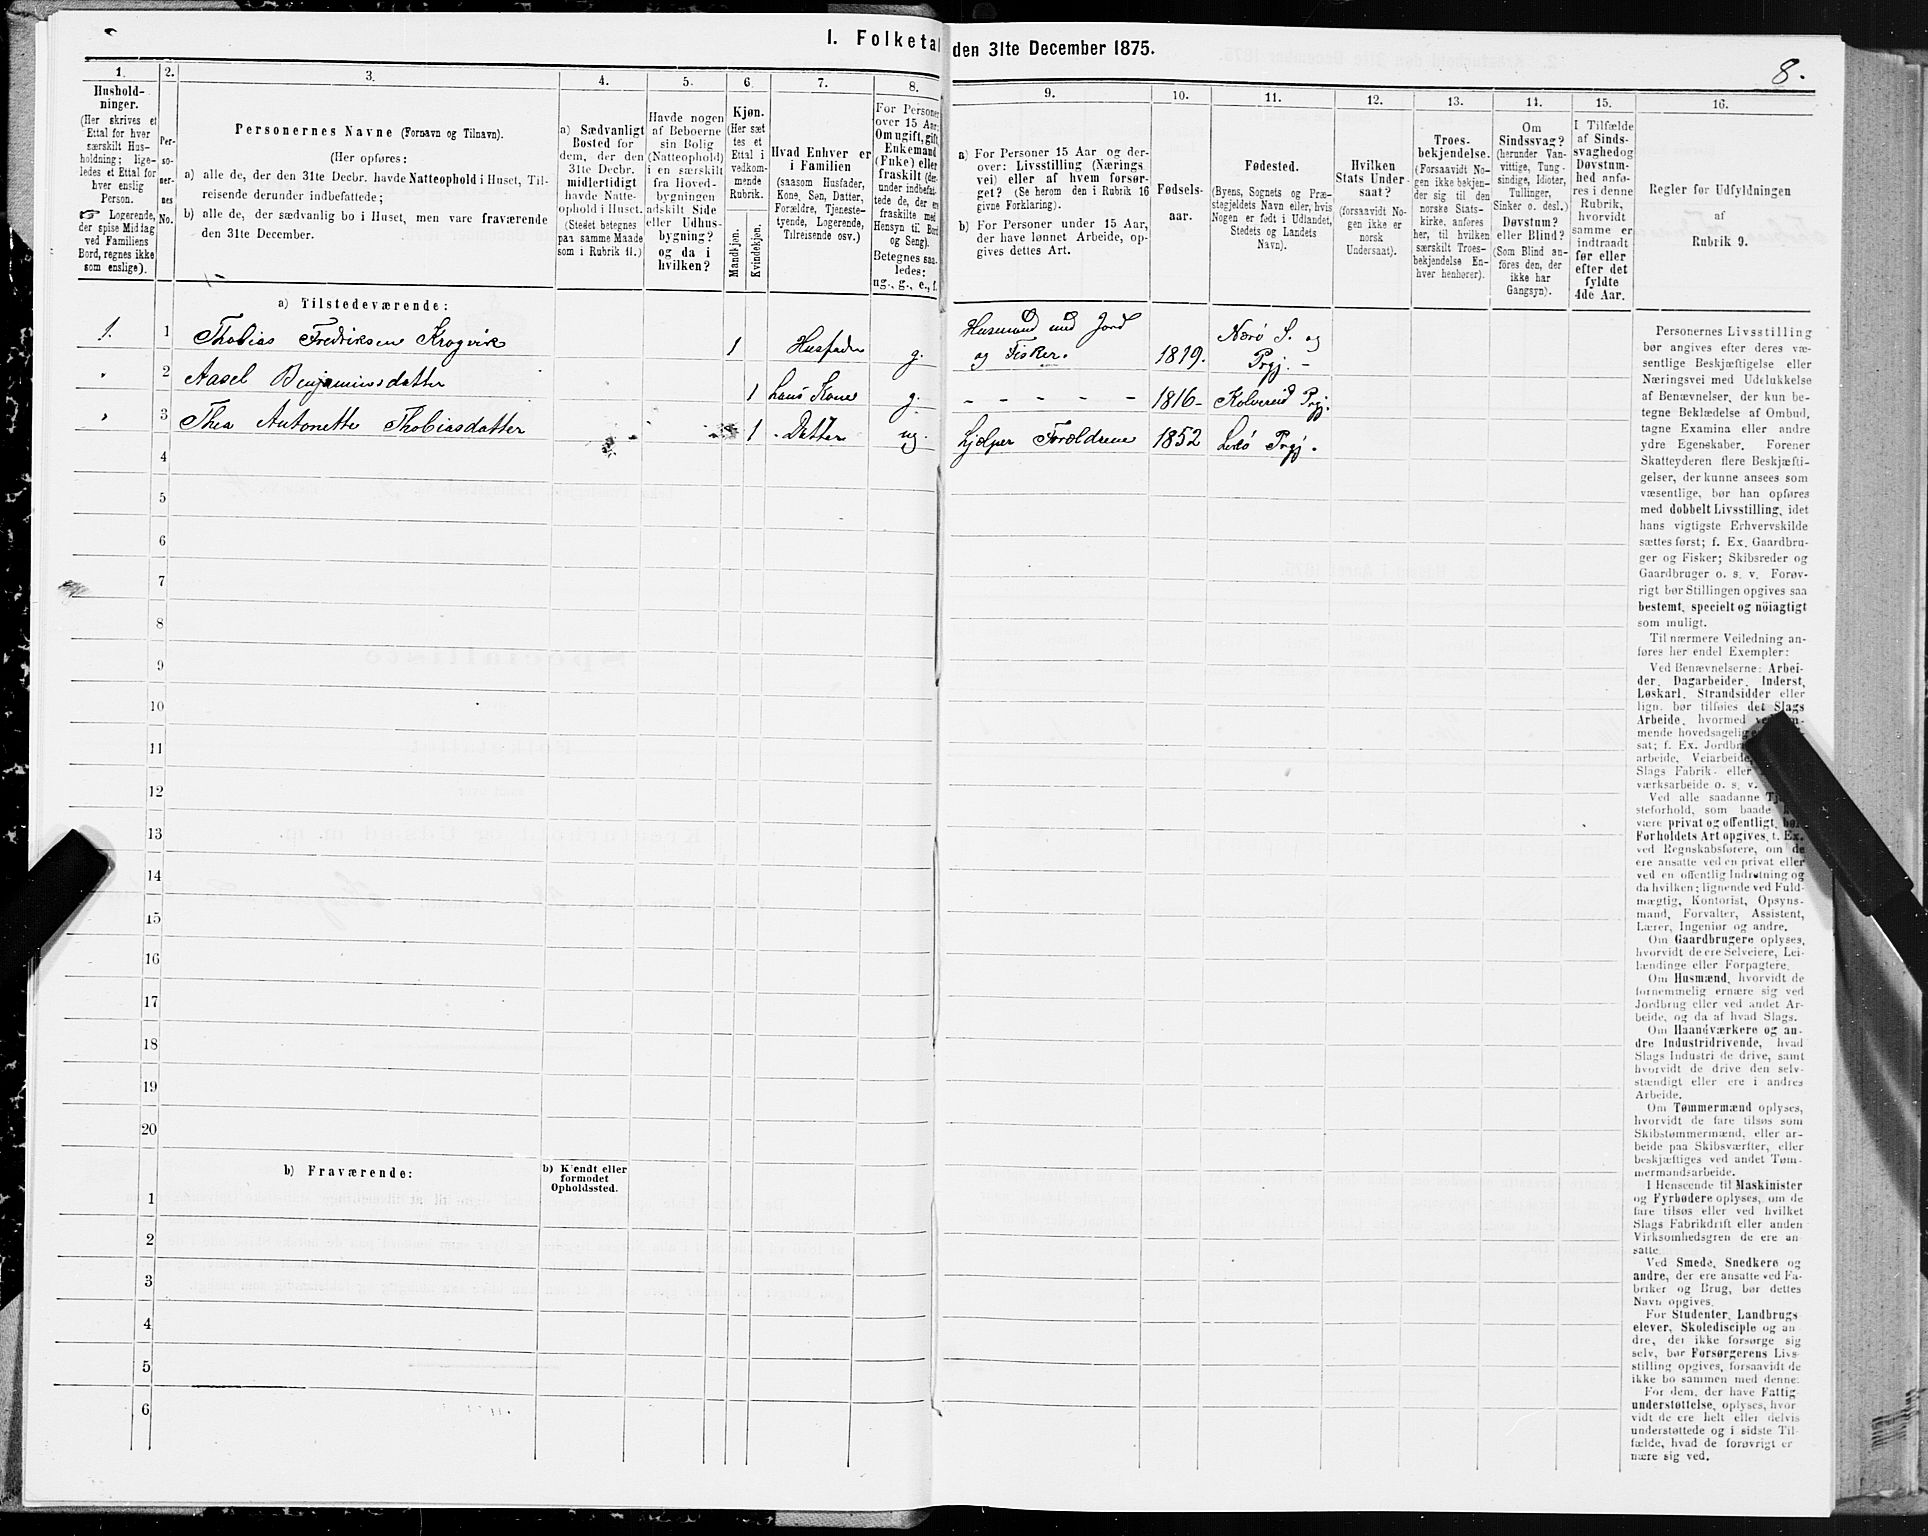 I. Folketal den 31te December 1875.
8.
1.
Hushold-
ninger.
(Her skrives et
Ettal for hver
særskilt Hus-
holdning; lige-
ledes et Ettal for
hver enslig
Person.
☞ Logerende,
der spise Middag
ved Familiens
Bord, regnes ikke
som enslige).
2.
Per-
so-
ner-
nes
No.
3.
Personernes Navne (Fornavn og Tilnavn).
(Her opføres:
a) alle de, der den 31te Decbr. havde Natteophold i Huset, Til-
reisende derunder indbefattede;
b) alle de, der sædvanlig bo i Huset, men vare fraværende
den 31te December.
4.
a) Sædvanligt
Bosted for
dem, der den
31te Decbr.
midlertidigt
havde Natte-
ophold i Huset.
(Stedet betegnes
paa samme Maade
som i Rubrik 11.)
5.
Havde nogen
af Beboerne
sin Bolig
(Natteophold)
i en særskilt
fra Hoved-
bygningen
adskilt Side
eller Udhus-
bygning?
og da i
hvilken?
6.
Kjøn.
(Her sæt
tes et
Ettal i
vedkom-
mende
Rubrik.
Mandkjøn.
Kvindekjøn.
7.
Hvad Enhver er
i Familien
(saasom Husfader,
Kone, Søn, Datter,
Forældre, Tjeneste-
tyende, Logerende,
Tilreisende osv.)
8.
For Personer
over 15 Aar:
Om ugift, gift,
Enkemand
(Enke) eller
fraskilt (der-
under indbefat-
tede de, der ere
fraskilte med
Hensyn til Bord
og Seng).
Betegnes saa-
ledes:
ug., g., e., f.
9.
a) For Personer 15 Aar og der-
over: Livsstilling (Nærings
vei) eller af hvem forsør-
get? (Se herom den i Rubrik 16
givne Forklaring).
b) For Personer under 15 Aar,
der have lønnet Arbeide, op-
gives dettes Art.
10.
Fødsels-
aar.
11.
Fødested.
(Byens, Sognets og Præ-
stegjeldets Navn eller, hvis
Nogen er født i Udlandet,
Stedets og Landets
Navn).
12.
Hvilken
Stats Under-
saat?
(forsaavidt No-
gen ikke er
norsk
Undersaat).
13.
Troes-
bekjendelse.
(Forsaavidt No-
gen ikke bekjen-
der sig til den
norske Stats-
kirke, anføres
her, til hvilken
særskilt Troes-
bekjendelse En-
hver henhører).
14.
Om
Sindssvag?
(herunder Van-
vittige, Tung-
sindige, Idioter,
Tullinger,
Sinker o. desl.)
Døvstum?
eller Blind?
(Som Blind an-
føres den, der
ikke har
Gangsyn).
15.
I Tilfælde
af Sinds-
svaghed og
Døvstum-
hed anfø-
res i denne
Rubrik,
hvorvidt
samme er
indtraadt
før eller
efter det
fyldte
4de Aar.
16.
Regler for Udfyldningen
af
Rubrik 9.
a) Tilstedeværende:
1. 1 Thobias Fredriksen Krogvik 1 Husfader g. Husmand med Jord og Fisker. 1819. Nærø S. og Prgj. -
" 2 Aasel Benjaminsdatter 1 hans Kone g. - - - - - 1816- Kolvereid Prgj.
" 3 Thea Antonette Thobiasdatter 1 Datter ug. hjelper Forældrene 1852 Lekø Prgj.
4
5
6
7
8
9
10
11
12
13
14
15
16
17
18
19
20
b) Fraværende:
b) Kjendt eller
formodet
Opholdssted.
1
2
3
4
5
6
Personernes Livsstilling
bør angives efter deres væ-
sentlige Beskjæftigelse eller
Næringsvei med Udelukkelse
af Benævnelser, der kun be-
tegne Beklædelse af Ombud,
tagne Examina eller andre
ydre Egenskaber. Forener
Skatteyderen flere Beskjæfti-
gelser, der kunne ansees som
væsentlige, bør han opføres
med dobbelt Livsstilling, idet
hans vigtigste Erhvervskilde
sættes først; f. Ex. Gaardbru-
ger og Fisker; Skibsreder og
Gaardbruger o. s. v. Forøv-
rigt bør Stillingen opgives saa
bestemt, specielt og nöiagtigt
som muligt.
Til nærmere Veiledning an-
føres her endel Exempler:
Ved Benævnelserne: Arbei-
der, Dagarbeider, Inderst,
Løskarl, Strandsidder eller
lign. bør tilføies det Slags
Arbeide, hvormed
mende hovedsagelig
sat; f. Ex.
arbeide, Veiarbeide,
Slags Fabrik- eller
værksarbeide o. s. v.
Ved alle saadanne
steforhold, som baade
være privat og offentligt, bør
Forholdets Art opgives, f. Ex.
ved Regnskabsførere, om de
ere ansatte ved en privat eller
ved en offentlig Indretning og
da hvilken; lignende ved Fuld-
mægtig, Kontorist, Opsyns-
mand, Forvalter, Assistent,
Lærer, Ingeniør og andre.
Om Gaardbrugere oplyses,
hvorvidt de ere Selveiere, Lei-
lændinge eller Forpagtere.
Om Husmænd, hvorvidt de
fornemmelig ernære sig ved
Jordbrug eller ved andet Ar-
beide, og da af hvad Slags.
Om Haandværkere og an-
dre Industridrivende, hvad
Slags Industri de drive, samt
hvorvidt de drive den selv-
stændigt eller ere i andres
Arbeide.
Om Tømmermænd oplyses,
hvorvidt de fare tilsøs som
Skibstømmermænd, eller ar-
beide paa Skibsværfter, eller
beskjæftiges ved andet Tøm-
mermandsarbeide.
I Henseende til Maskinister
og Fyrbødere oplyses, om de
fare tilsøs eller ved hvilket
Slags Fabrikdrift eller anden
Virksomhedsgren de ere an-
satte.
Ved Smede, Snedkere og
andre, der ere ansatte ved Fa-
briker og Brug, bør dettes
Navn opgives.
For Studenter, Landbrugs
elever, Skoledisciple og an-
dre, der ikke forsørge sig
selv, bør Forsørgerens Livs-
stilling opgives, forsaavidt de
ikke bo sammen med denne.
For dem, der have Fattig
understøttelse, oplyses, hvor
vidt de ere helt eller delvis
understøttede og i sidste Til-
fælde, hvad de forøvrigt er
nære sig ved.